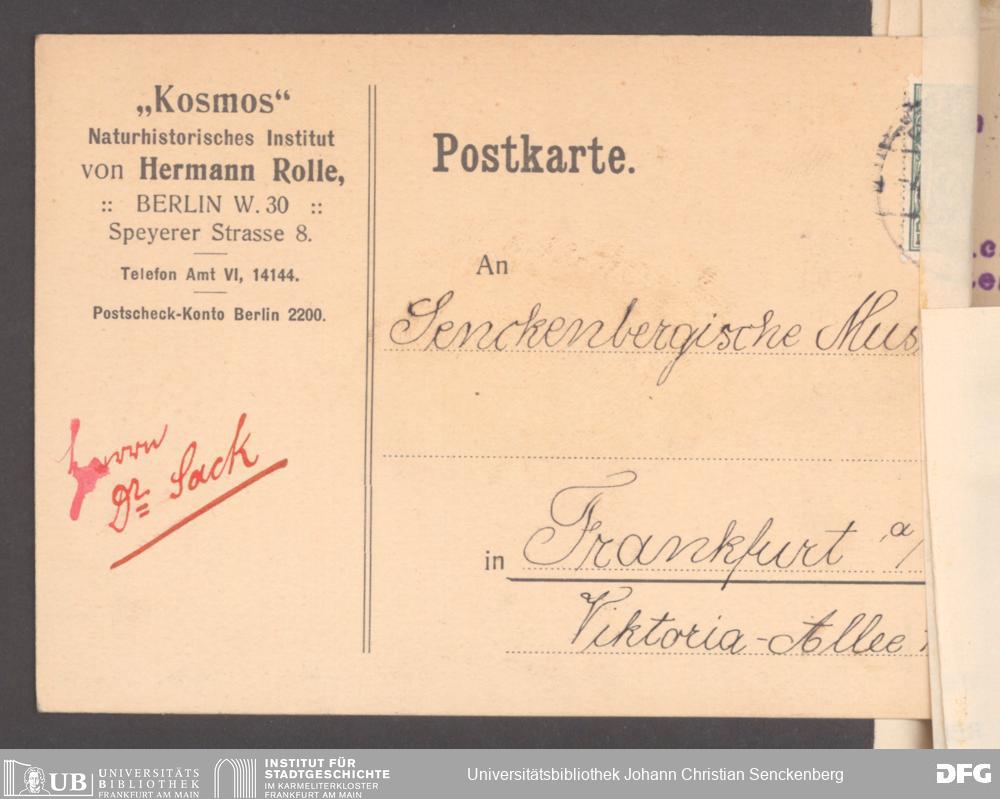 „Kosmos“
Naturhistorisches Institut
von Hermann Rolle,
:: BERLIN W. 30 ::
Speyerer Strasse 8.
Telefon Amt VI, 14144.
Postscheck-Konto Berlin 2200.
Herrn
Dr. Sack
Postkarte.
An
Senckenbergische Mus
in Frankfurt a/
Viktoria-Allee
UB UNIVERSITÄTS
BIBLIOTHEK
FRANKFURT AM MAIN
INSTITUT FÜR
STADTGESCHICHTE
IM KARMELITERKLOSTER
FRANKFURT AM MAIN
Universitätsbibliothek Johann Christian Senckenberg
DFG